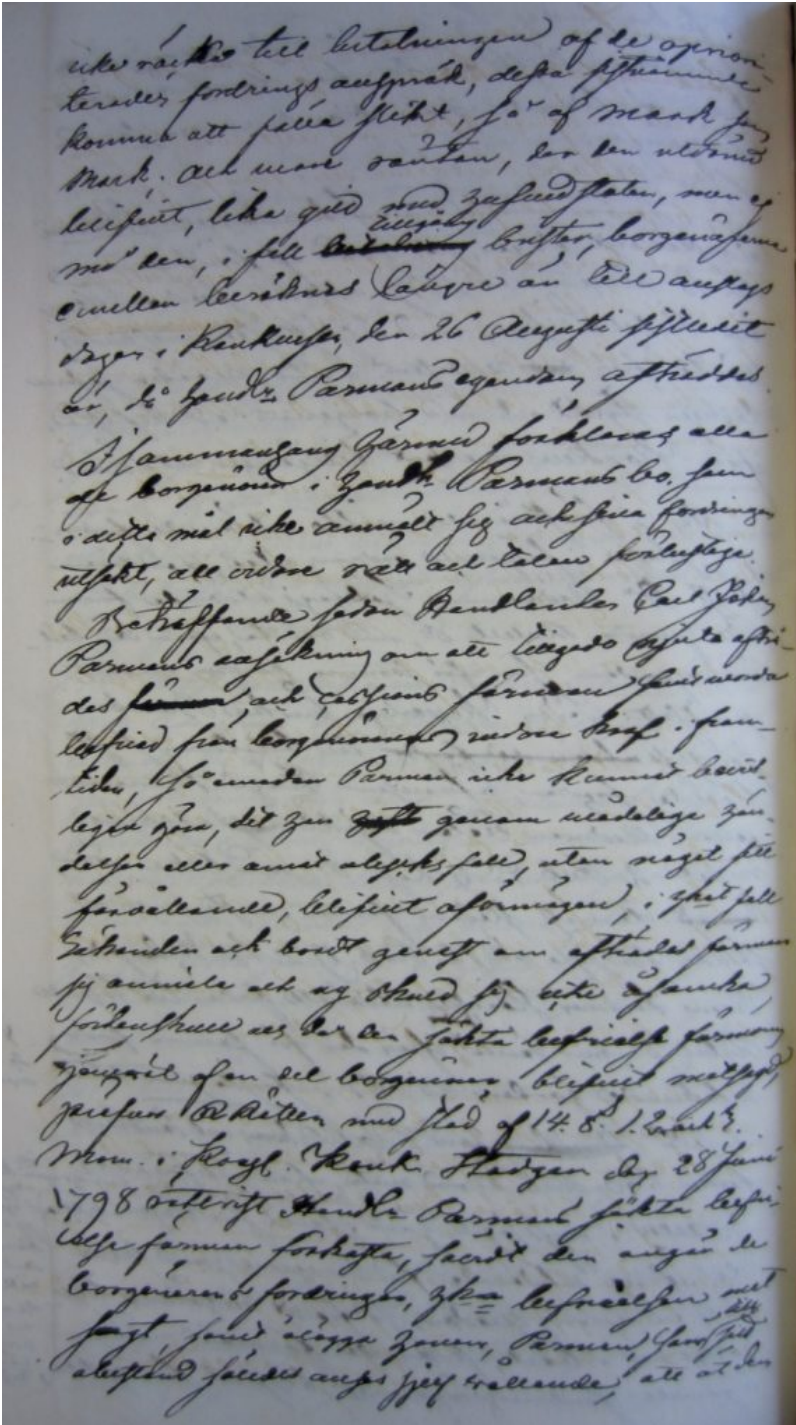 icke räcka till betalningen af de oprior-
terades fordrings anspråk, dessa sistnämnde
komma att falla slikt, så af mark som
mark; och vare räntan, der den utdömd
blifvit, lika god med hufvudstolen, men ej
må den, i fall tillgång brister, borgenärerna
emellan beräknas längre än till anslags
dagen i Konkursen, den 26 Augusti sistledit
år, då Handl. Parmans egendom afträddes.
I sammanhang härmed förklaras alla
de borgenärer i Handl. Parmans bo, som
i detta mål icke anmält sig och sina fordringar
utsökt, all vidare rätt och talan förlustige.
Beträffande sedan Handlanden Carl Johan
Parmans ansökning om att tillgodo njuta afträ-
des och cessions förmån samt warda
befriad från borgenärernes vidare kraf i fram-
tiden, så emedan Parman icke kunnat bevis-
ligen göra, det han genom vådelige hän-
delser eller annat olycksfall, utan något sitt
förvållande, blifvit oförmögen, i hvilket fall
Sökanden ock bordt genast om afträdes förmån
sig anmäla och ej skuld sig icke åsamka,
fördenskull och då den sökta befrielse förmån
jemväl af en del borgenärer blifvit motsagd,
pröfvar RåRätten med stöd af 14. §. 1. 2. och 3.
Mom. i Kongl. Konk. Stadgan den 28 Juni
1798 rättvist Handl. Parmans sökta befri-
else förmån förkasta, såvidt den angår de
borgenärers fordringar, hvilka befrielsen mot
sagt, samt ålägga honom, Parman, som sitt
obestånd således anses sjelf vållande, att åt den